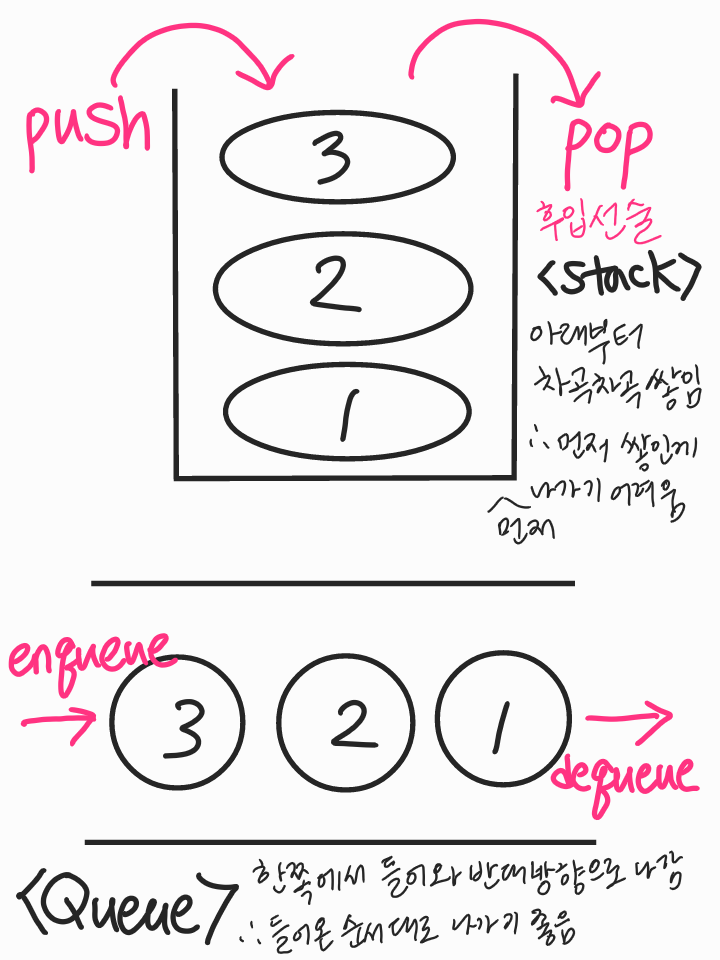 push
pop
3
2
1
후입선출
<stack>
아래부터
차곡차곡 쌓임
∴ 먼저 쌓인게
나가기 어려움
먼저
enqueue
3 2 1
dequeue
<Queue>
한쪽에서 들어와 반대방향으로 나감
∴ 들어온 순서대로 나가기 좋음